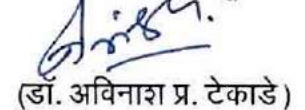 (डॉ. अविनाश प्र. टेकाडे)